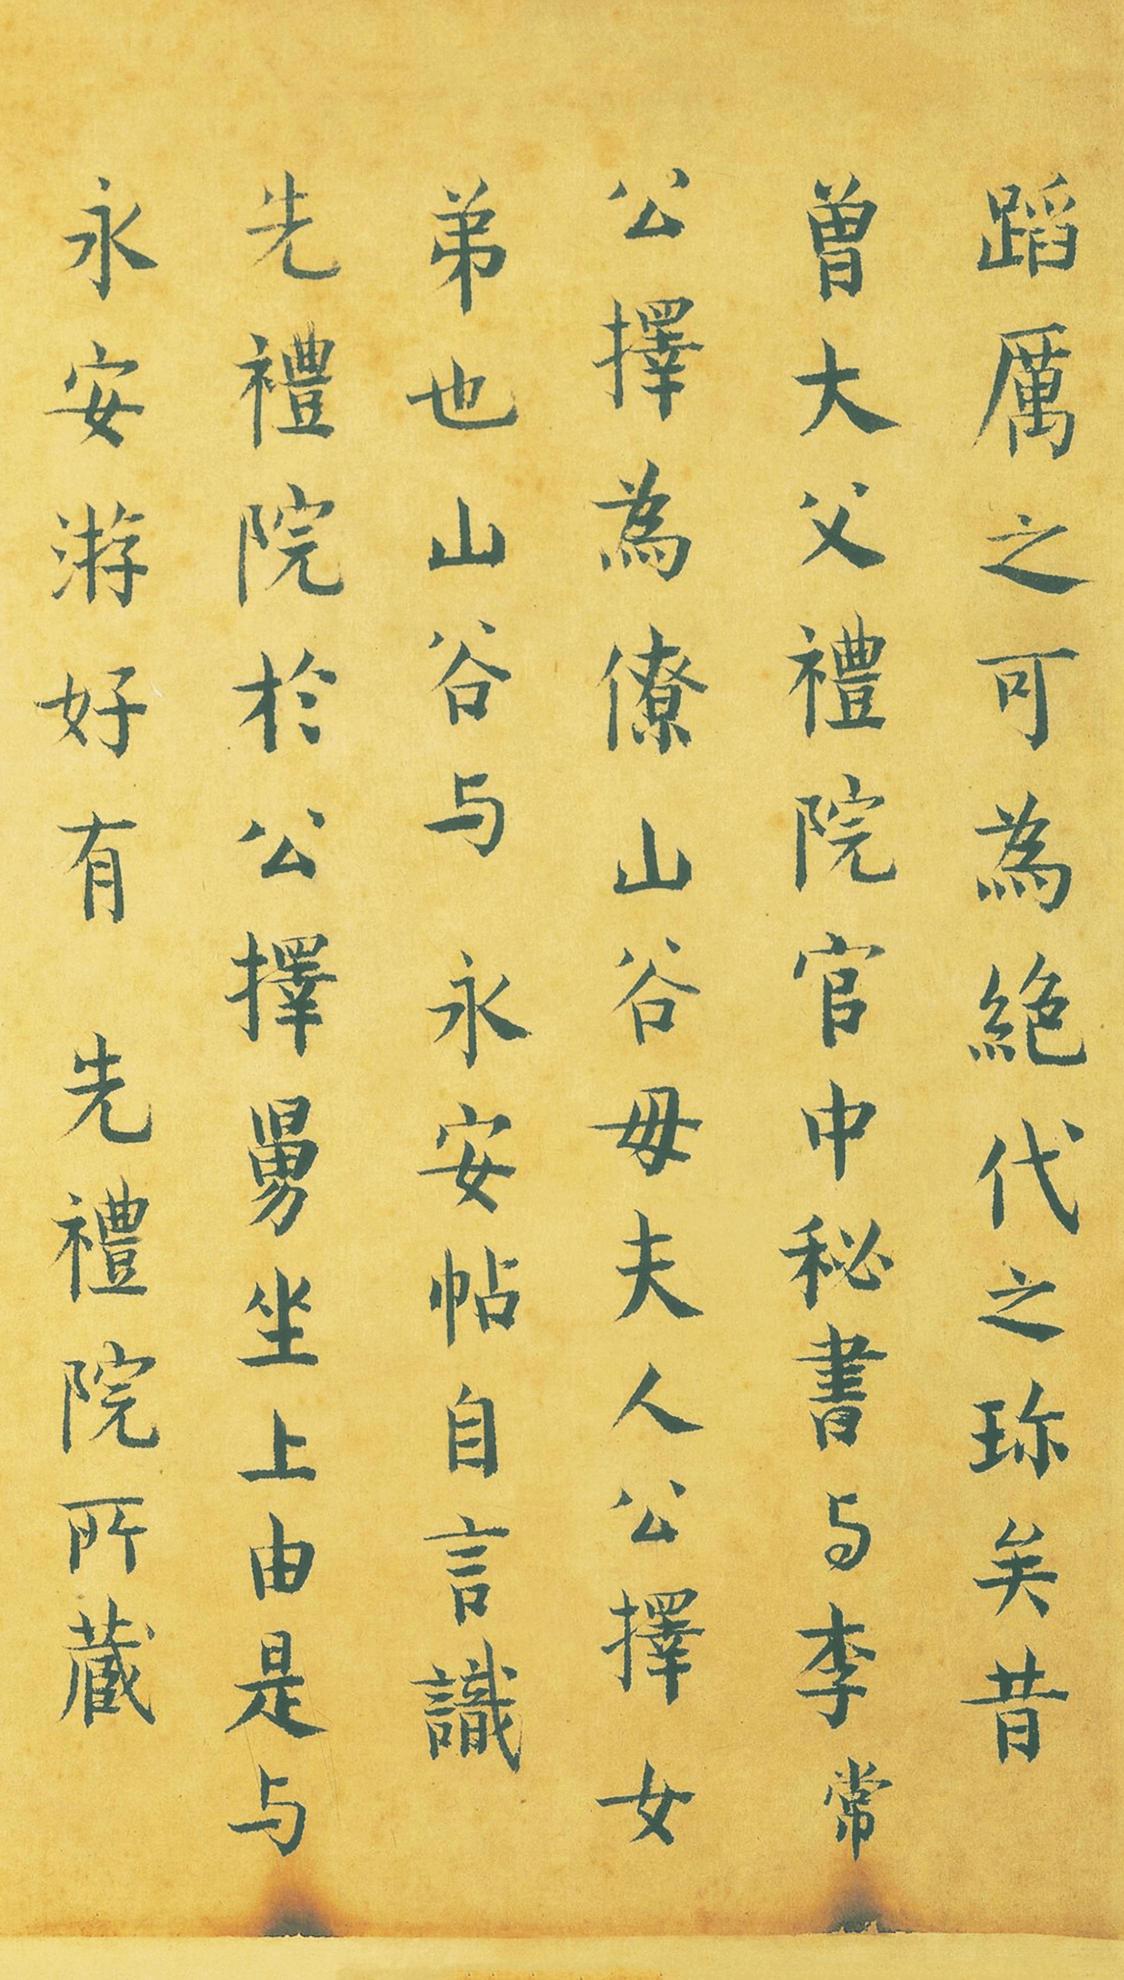 蹈厲之可為絕代之珎矣昔
曽大父禮院官中秘書与李常
公擇為僚山谷母夫人公擇女
弟也山谷与 永安帖自言識
先禮院於公擇舅坐上由是与
永安游好有 先禮院所藏